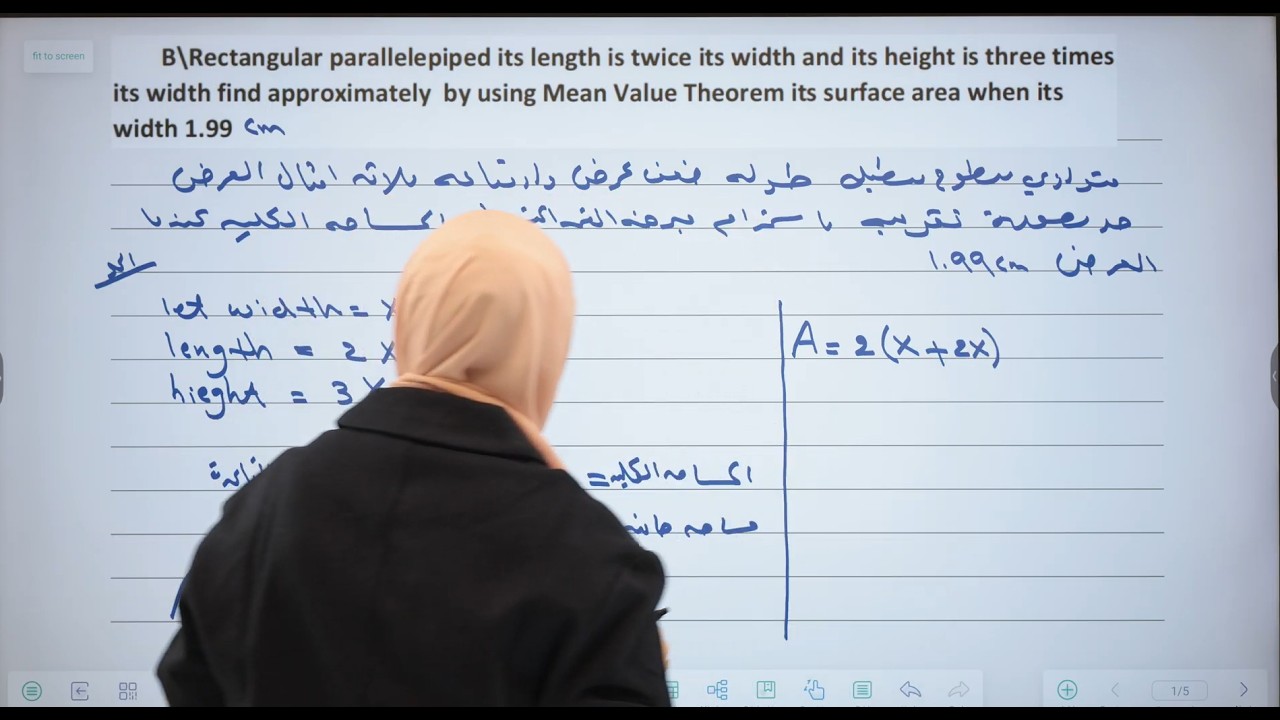 fit to screen
B\Rectangular parallelepiped its length is twice its width and its height is three times
its width find approximately by using Mean Value Theorem its surface area when its
width 1.99 cm
متوازي سطوح مستطيله طوله ضعف عرض وارتفاعه ثلاثه امثال العرض
جد بصورة تقريب باستخدام مبرهنه القيمه المساحه الكليه عندما
العرض 1.99cm
الحل
let width = x
length = 2x
hieght = 3x
المساحه الكليه =
مساحه
A = 2(x+2x)
1/5